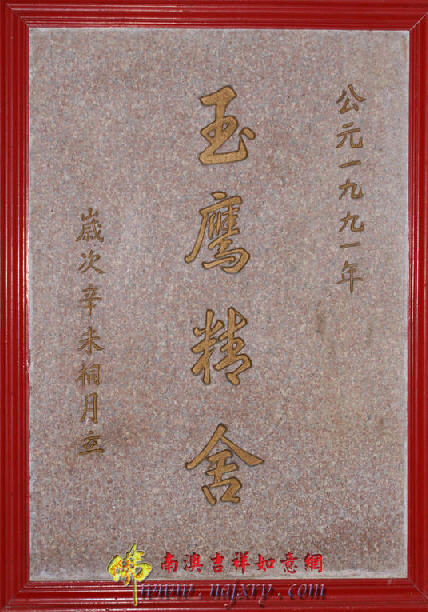 公元一九九一年
玉鷹精舍
嵗次辛未桐月立
佛
南澳吉祥如意網
www.najxry.com